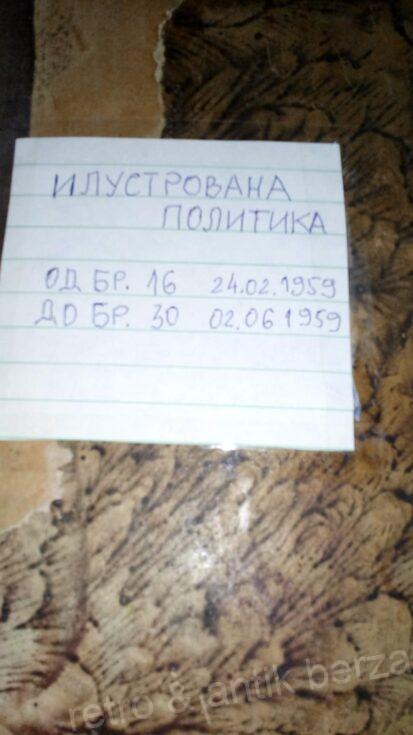 ИЛУСТРОВАНА
ПОЛИТИКА
ОД БР. 16 24.02.1959
ДО БР. 30 02.06 1959
retro & antik berza